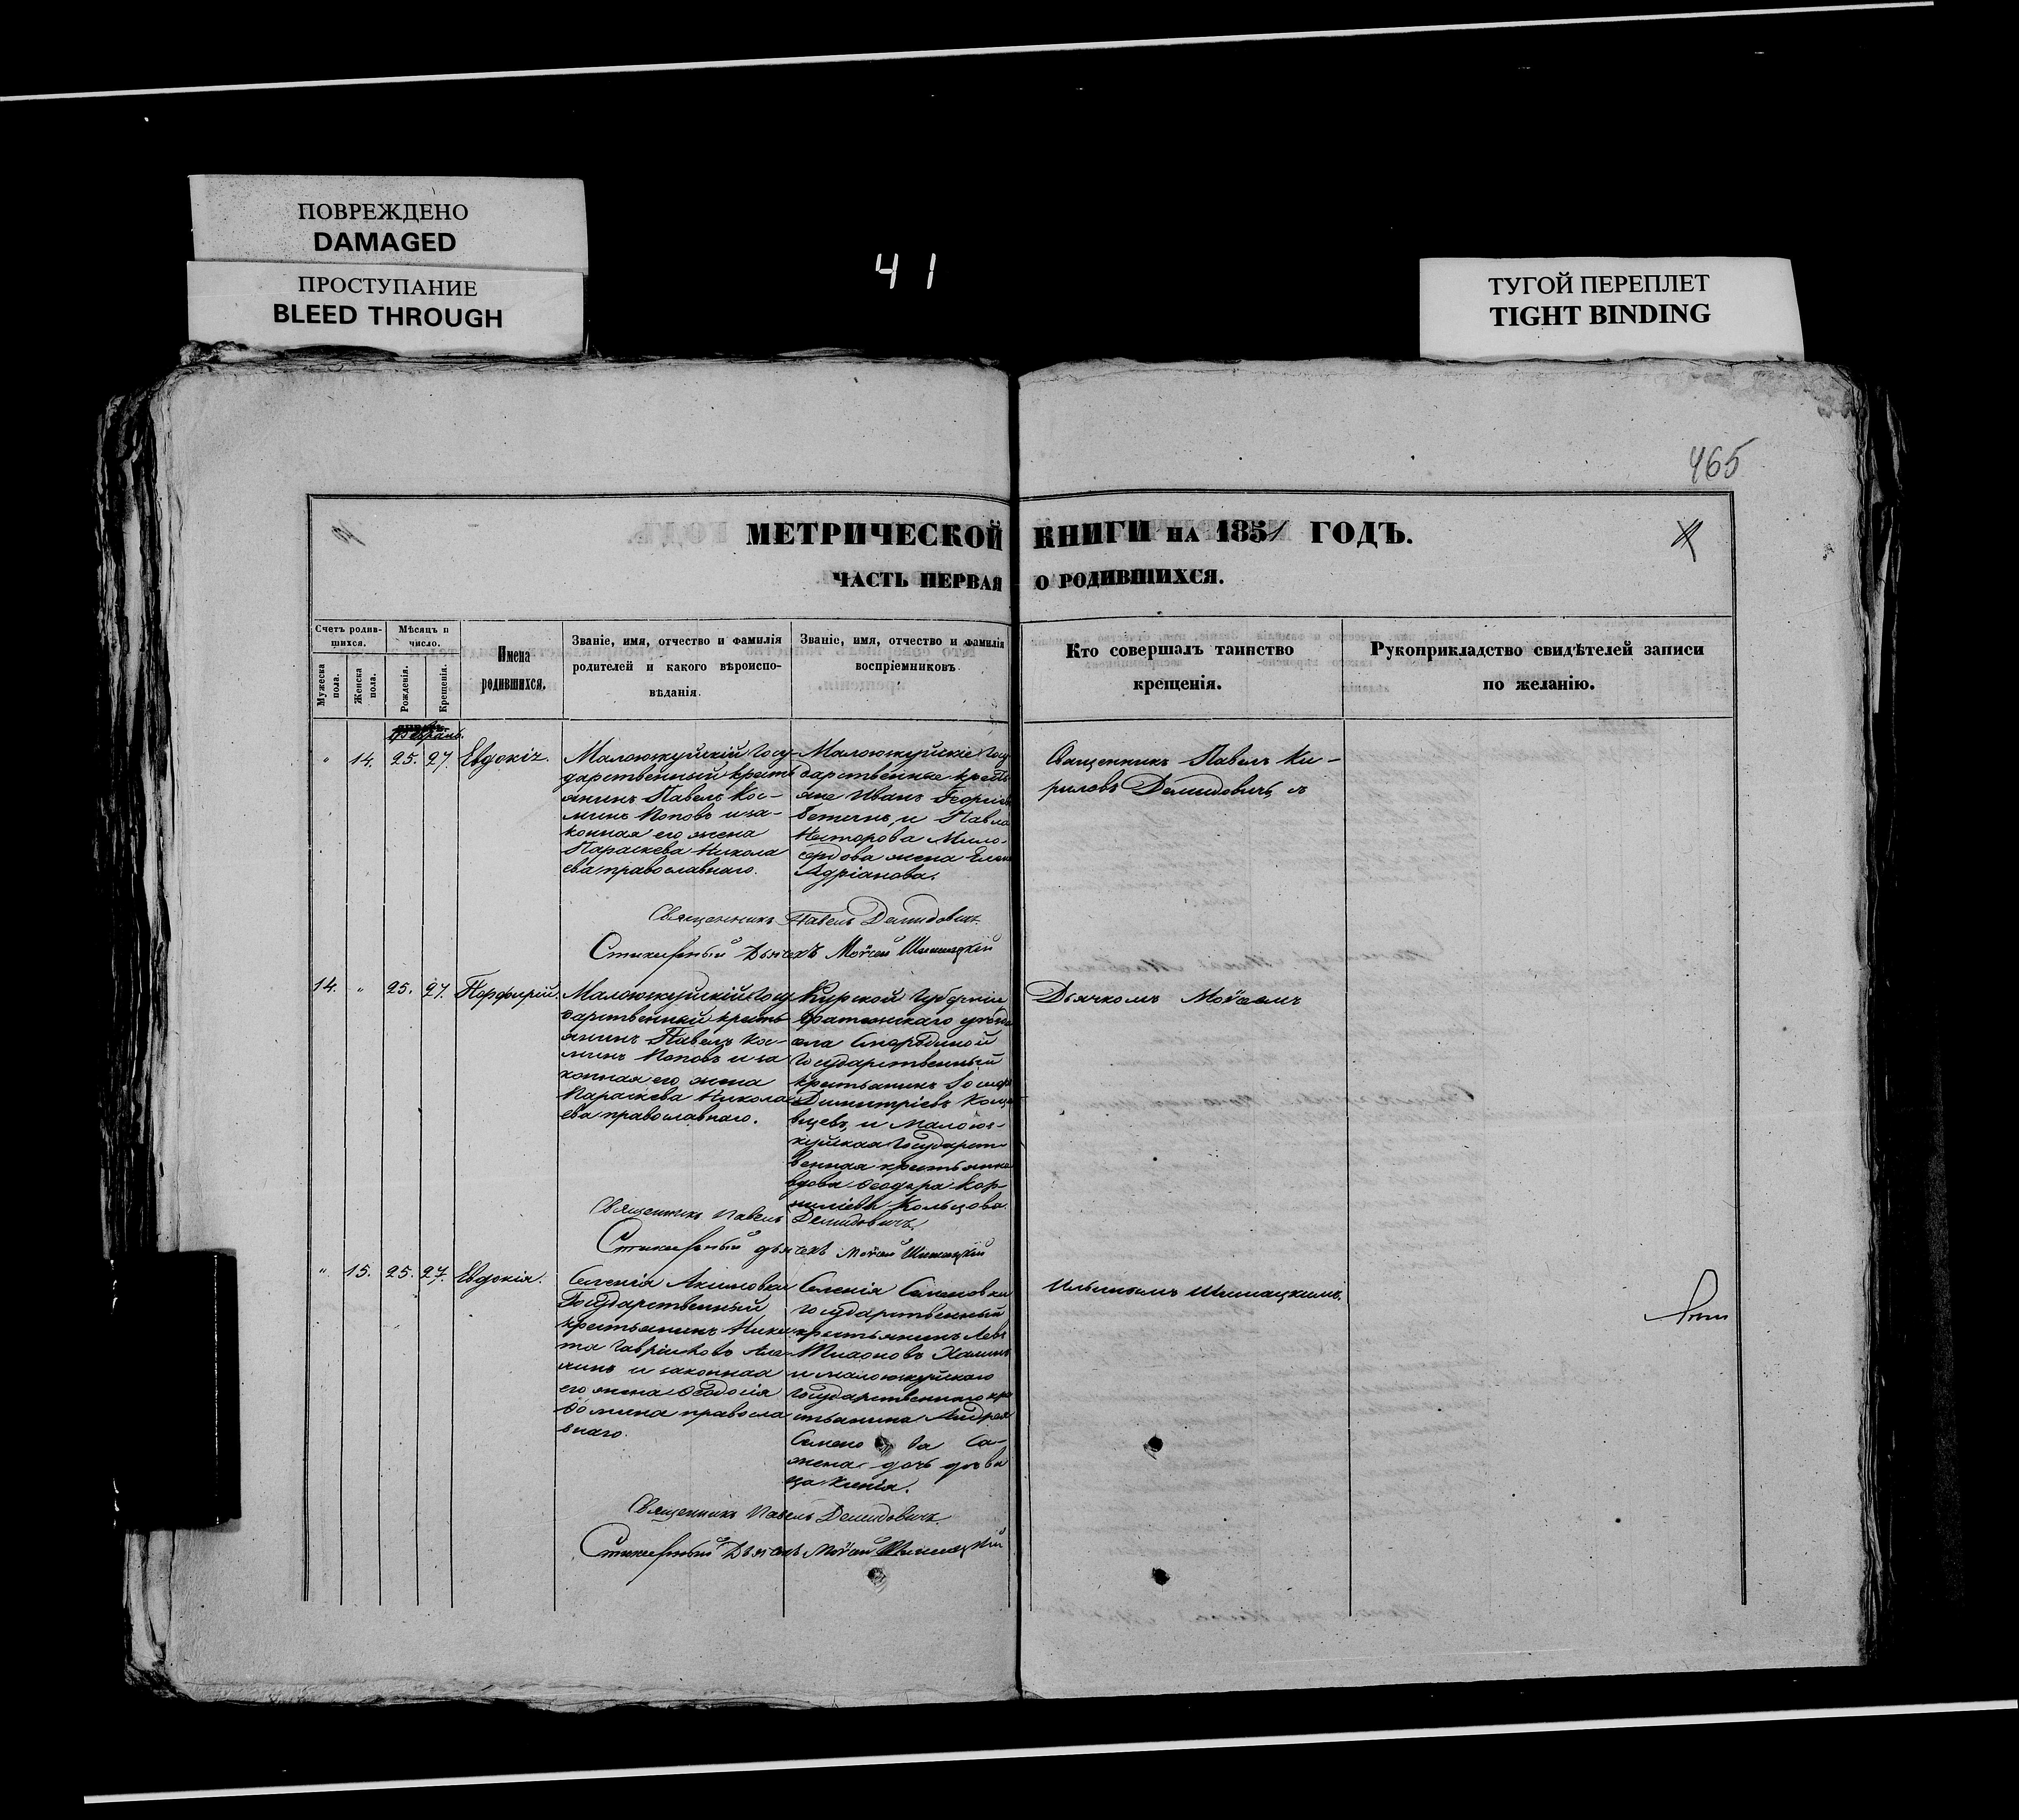 ПОВРЕЖДЕНО
DAMAGED
ПРОСТУПАНИЕ
BLEED THROUGH
41
ТУГОЙ ПЕРЕПЛЕТ
TIGHT BINDING
465
МЕТРИЧЕСКОЙ КНИГИ НА 1851 ГОДЪ.
ЧАСТЬ ПЕРВАЯ О РОДИВШИХСЯ.
Счетъ родив-
шихся.
Мужеска
пола.
Женска
пола.
Мѣсяцъ и
число.
Рожденія.
Крещенія.
Имена
родившихся.
Званіе, имя, отчество и фамилія
родителей и какого вѣроиспо-
вѣданія.
Званіе, имя, отчество и фамилія
воспріемниковъ
Кто совершалъ таинство
крещенія.
Рукоприкладство свидѣтелей записи
по желанію.
" 14. 25. 27. Евдокія.
Государ
дарственный кресть
янинъ Павелъ Кос-
минъ Поповъ и за-
конная его жена
Параскева Никола
ева православнаго.
дарственные кресть
яне Иванъ
и Павла
Несторова Мило-
сердова жена
Адріанова.
Священникъ Павелъ Ки-
риловъ Демидовичъ, съ
Священникъ Павелъ Демидовичъ
Стихарный Дьячекъ Мойсей Шимацкій
14. " 25. 27. Порфирій.
дарственный кресть
янинъ Павелъ Кос-
минъ Поповъ и за
конная его жена
Параскева Никола
ева православнаго.
Курской Губерніи
села
Государственный
крестьянинъ
Димитріевъ
и
Государст-
венная крестьянка
вдова Ѳеодора Кор-
Кольцова.
Дьячкомъ Мойсеемъ
Священникъ Павелъ Демидовичъ
Стихарный дьячекъ Мойсей Шимацкій
" 15. 25. 27. Евдокія.
Селенія Акимовки
Государственный
крестьянинъ Ники
та
и законная
его жена Ѳеодосія
Ѳомина правосла
внаго.
Селенія Семеновки
государственный
крестьянинъ Левъ
и
государственнаго кре
стьянина Андрея
Семено ва
дочь дѣви
ца Ксенія.
Ильинымъ Шимацкимъ.
Священникъ Павелъ Демидовичъ
Стихарный Дьячекъ Мойсей Шимацкій